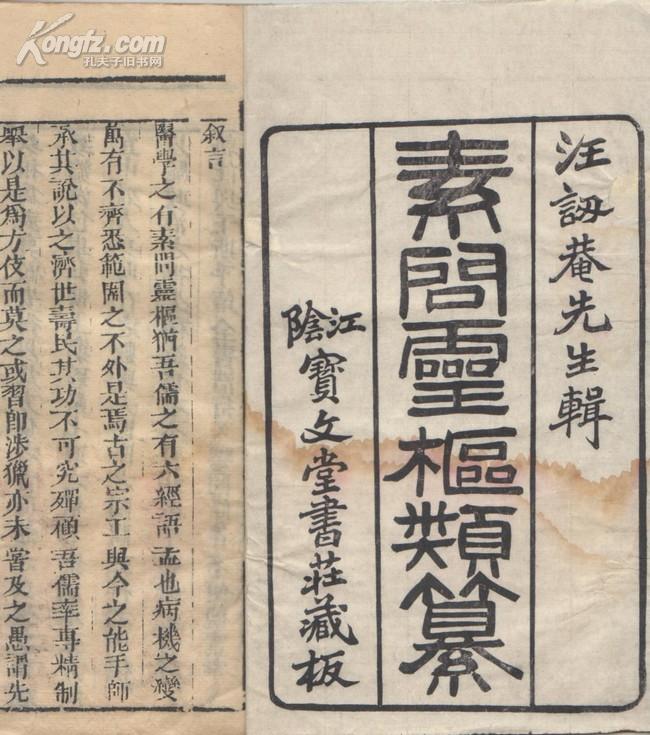 汪訒菴先生輯
素問靈樞類纂
江陰寶文堂書莊藏板
叙言
醫學之有素問靈樞猶吾儒之有六經語孟也病機之變
萬有不齊悉範圍之不外是焉古之宗工與今之能手師
承其說以之濟世壽民其功不可究殫顧吾儒率專精制
舉以是爲方伎而莫之或習即涉獵亦未嘗及之愚謂先
Kongfz.com
孔夫子旧书网